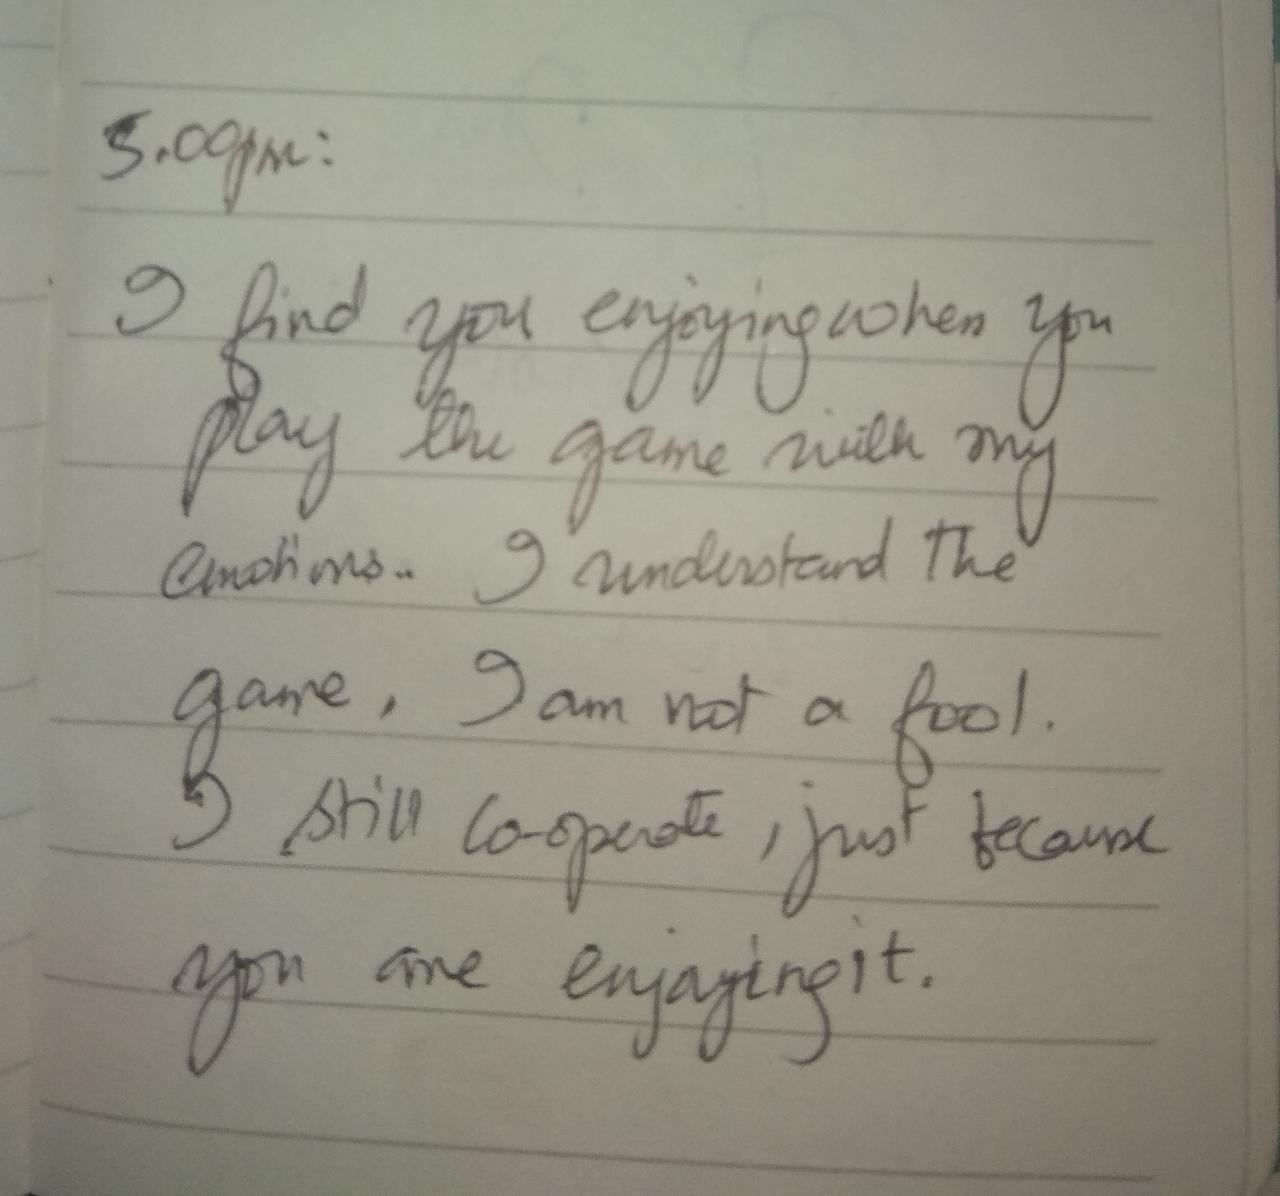 5.09pm:
I find you enjoying when you
play the game with my
emotions.. I understand the
game, I am not a fool.
I still co-operate, just because
you are enjoying it.